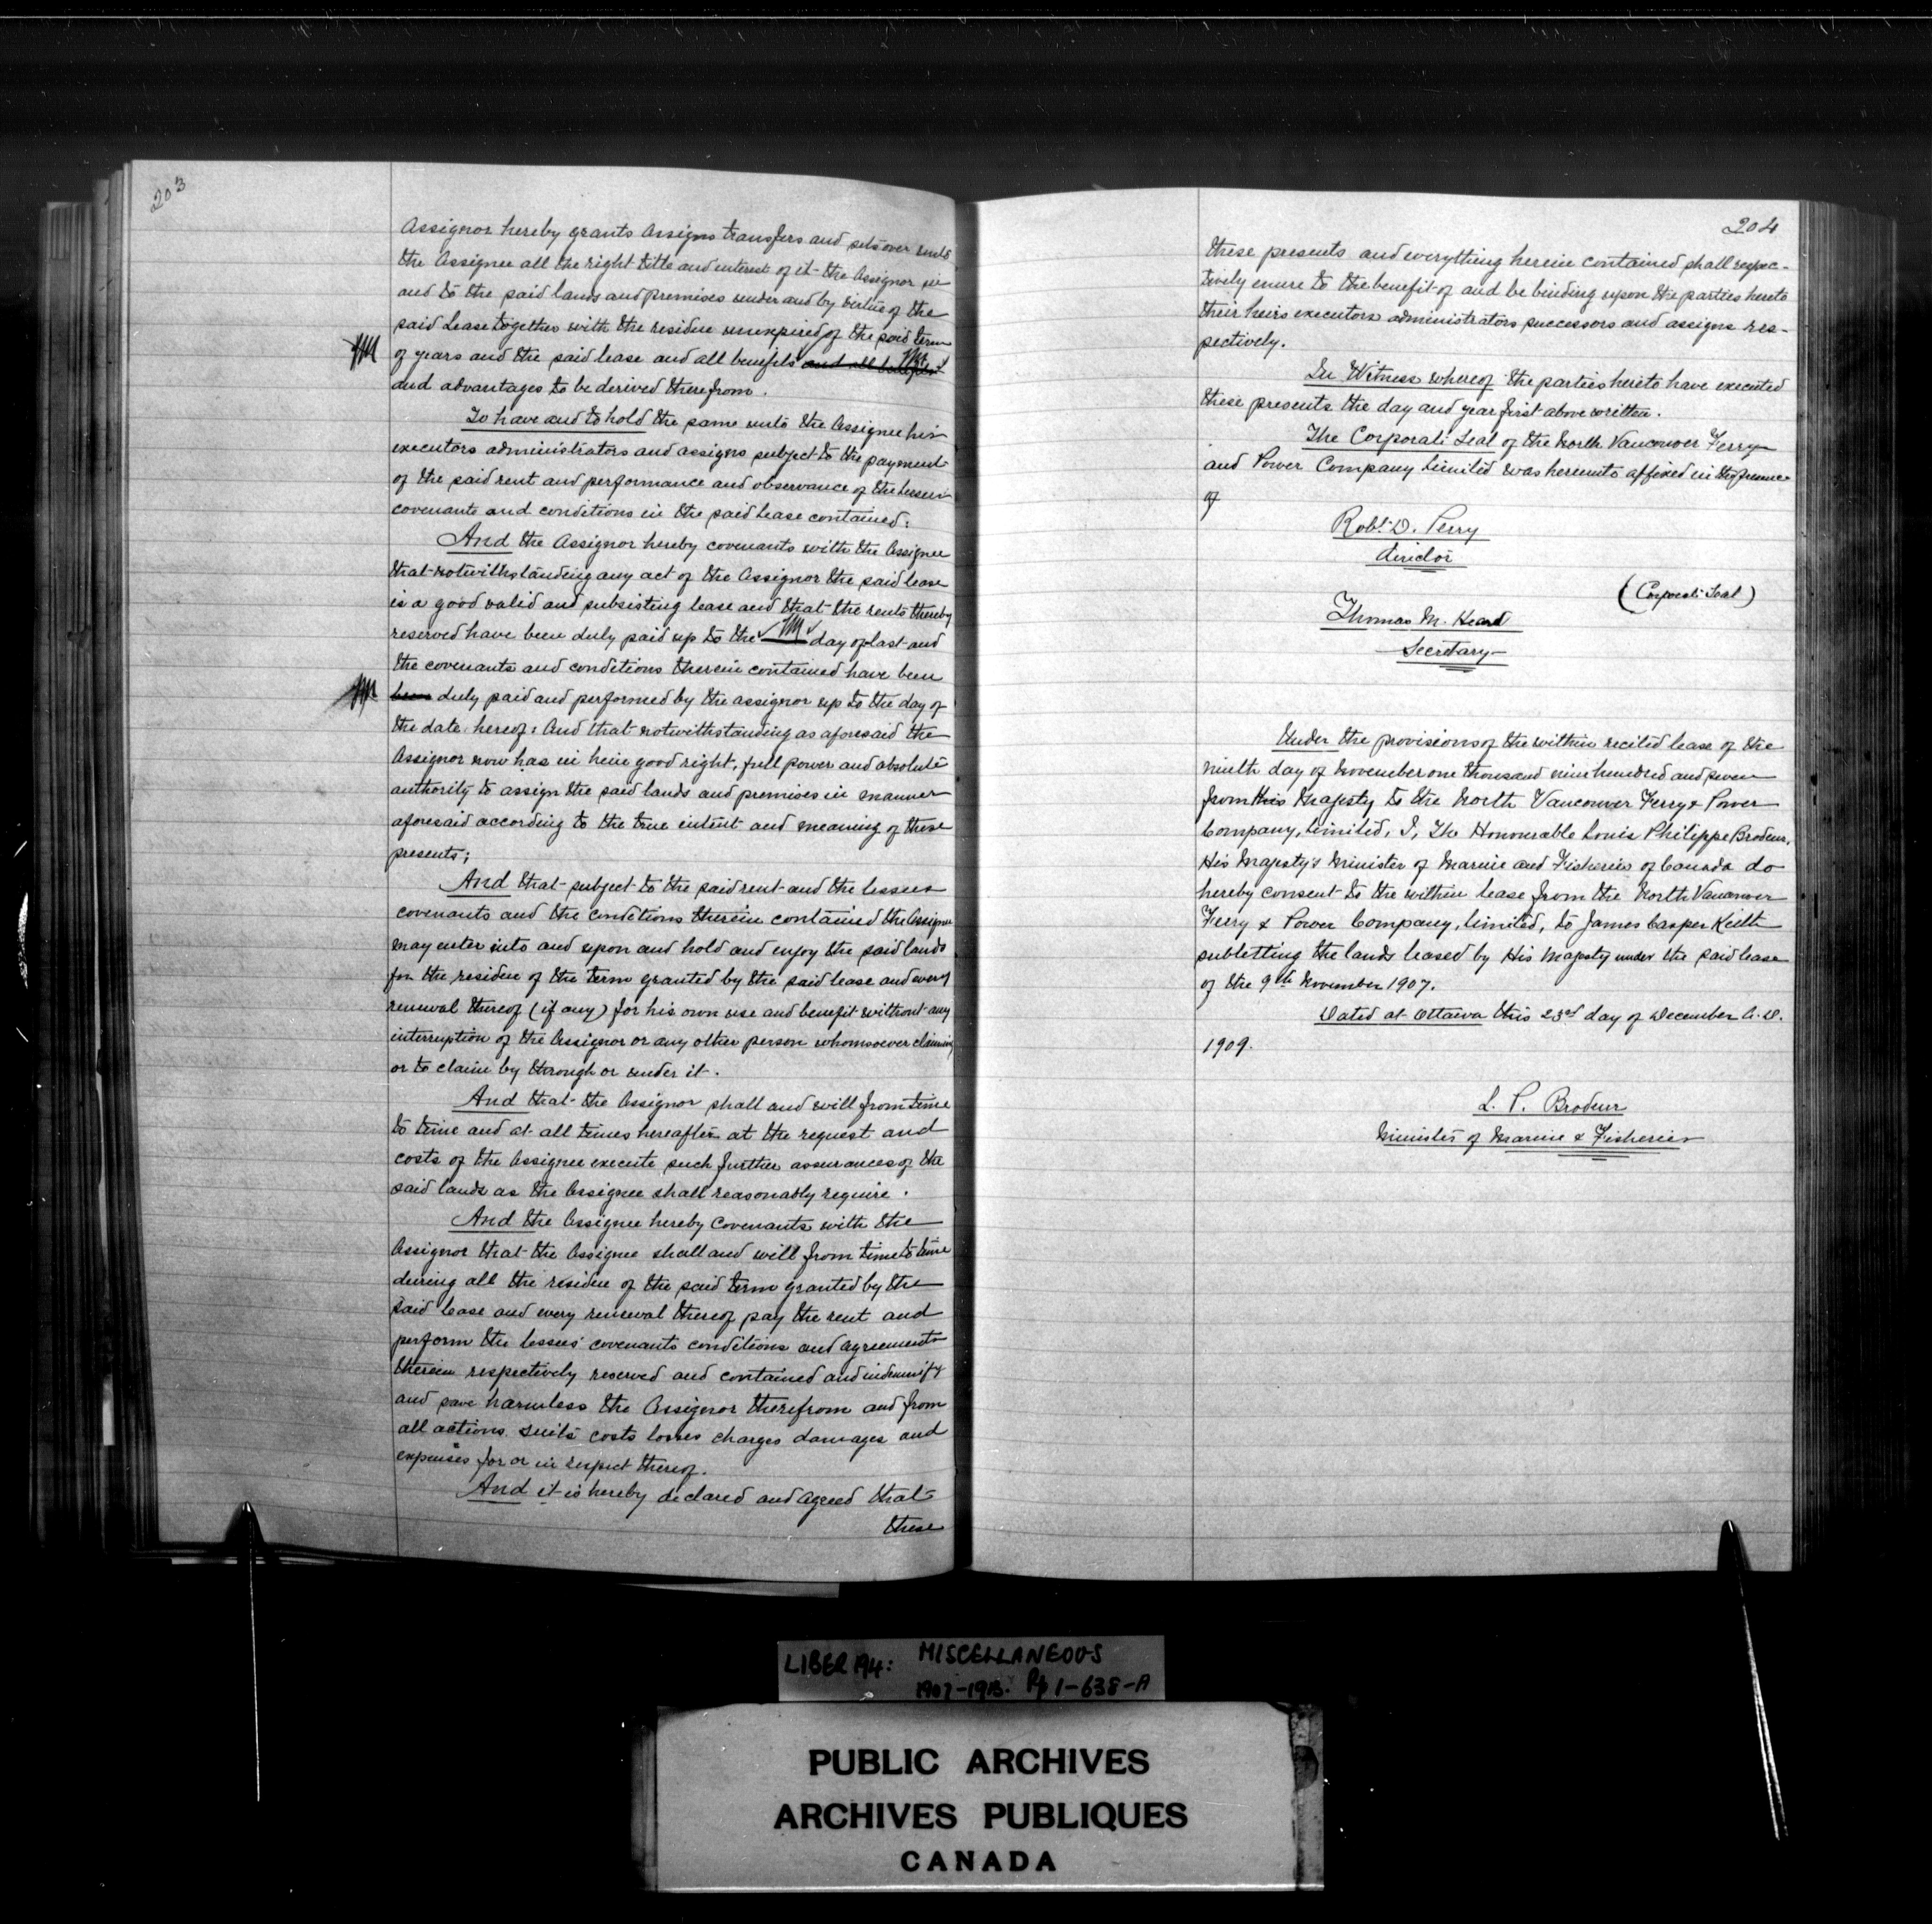 203
Assignor hereby grants Assigns transfers and sets over unto
the Assignee all the right title and interest of it the Assignor in
and to the said lands and premises under and by virtue of the
said Lease together with the residue unexpired of the said term
of years and the said lease and all benefits and all benefits
and advantages to be derived therefrom.
To have and to hold the same unto the Assignee his
executors administrators and assigns subject to the payment
of the said rent and performance and observance of the lessees
covenants and conditions in the said Lease contained:
And the Assignor hereby covenants with the Assignee
that notwithstanding any act of the Assignor the said lease
is a good valid and subsisting lease and that the rents thereby
reserved have been duly paid up to the day of last and
the covenants and conditions therein contained have been
been duly paid and performed by the assignor up to the day of
the date hereof: And that notwithstanding as aforesaid the
Assignor now has in him good right, full power and absolute
authority to assign the said lands and premises in manner
aforesaid according to the true intent and meaning of these
presents;
And that subject to the said rent and the lessees
covenants and the conditions therein contained the Assignee
may enter into and upon and hold and enjoy the said lands
for the residue of the term granted by the said lease and every
renewal thereof (if any) for his own use and benefit without any
interruption of the Assignor or any other person whomsoever claiming
or to claim by through or under it.
And that the Assignor shall and will from time
to time and at all times hereafter at the request and
costs of the Assignee execute such further assurances of the
said lands as the Assignee shall reasonably require.
And the Assignee hereby Covenants with the
Assignor that the Assignee shall and will from time to time
during all the residue of the said term granted by the
said lease and every renewal thereof pay the rent and
perform the lessees' covenants conditions and agreements
therein respectively reserved and contained and indemnify
and save harmless the Assignor therefrom and from
all actions suits costs losses charges damages and
expenses for or in respect thereof.
And it is hereby declared and agreed that
these
204
these presents and everything herein contained shall respec-
tively enure to the benefit of and be binding upon the parties hereto
their heirs executors administrators successors and assigns res-
pectively.
In Witness whereof the parties hereto have executed
these presents the day and year first above written.
The Corporate Seal of the North Vancouver Ferry
and Power Company Limited was hereunto affixed in the presence
of
Robt. D. Perry
director
(Corporate Seal)
Thomas M. Heard
Secretary
Under the provisions of the within recited lease of the
ninth day of November one thousand nine hundred and seven
from His Majesty to the North Vancouver Ferry & Power
Company, Limited, I, The Honourable Louis Philippe Brodeur,
His Majesty's Minister of Marine and Fisheries of Canada do
hereby consent to the within lease from the North Vancouver
Ferry & Power Company, Limited, to James Casper Keith
subletting the lands leased by His Majesty under the said lease
of the 9th November 1907.
Dated at Ottawa this 23rd day of December A.D.
1909.
L. P. Brodeur
Minister of Marine & Fisheries
LIBER 194: MISCELLANEOUS
1907-1913. Pp 1-638-A
PUBLIC ARCHIVES
ARCHIVES PUBLIQUES
CANADA